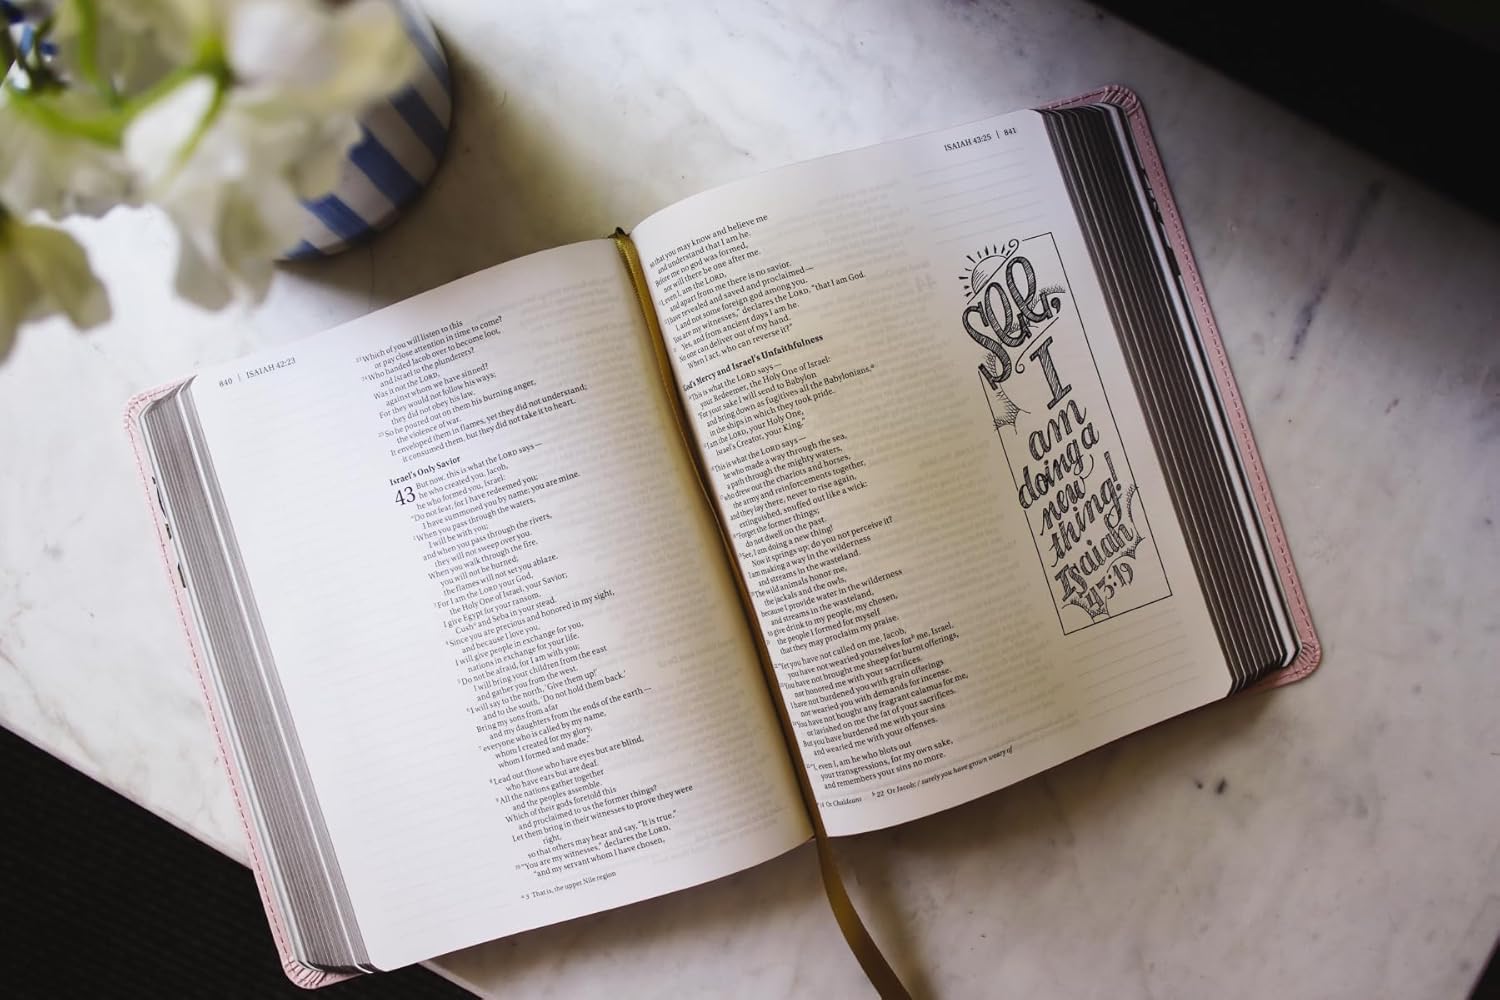 840 | ISAIAH 42:23
23 Which of you will listen to this
or pay close attention in time to come?
24 Who handed Jacob over to become loot,
and Israel to the plunderers?
Was it not the LORD,
against whom we have sinned?
For they would not follow his ways;
they did not obey his law.
25 So he poured out on them his burning anger,
the violence of war.
It enveloped them in flames, yet they did not understand;
it consumed them, but they did not take it to heart.
Israel's Only Savior
43 But now, this is what the LORD says—
he who created you, Jacob,
he who formed you, Israel:
"Do not fear, for I have redeemed you;
I have summoned you by name; you are mine.
2 When you pass through the waters,
I will be with you;
and when you pass through the rivers,
they will not sweep over you.
When you walk through the fire,
you will not be burned;
the flames will not set you ablaze.
3 For I am the LORD your God,
the Holy One of Israel, your Savior;
I give Egypt for your ransom,
Cush a and Seba in your stead.
4 Since you are precious and honored in my sight,
and because I love you,
I will give people in exchange for you,
nations in exchange for your life.
5 Do not be afraid, for I am with you;
I will bring your children from the east
and gather you from the west.
6 I will say to the north, 'Give them up!'
and to the south, 'Do not hold them back.'
Bring my sons from afar
and my daughters from the ends of the earth—
7 everyone who is called by my name,
whom I created for my glory,
whom I formed and made."
8 Lead out those who have eyes but are blind,
who have ears but are deaf.
9 All the nations gather together
and the peoples assemble.
Which of their gods foretold this
and proclaimed to us the former things?
Let them bring in their witnesses to prove they were
right,
so that others may hear and say, "It is true."
10 "You are my witnesses," declares the LORD,
"and my servant whom I have chosen,
a 3 That is, the upper Nile region
ISAIAH 43:25 | 841
so that you may know and believe me
and understand that I am he.
Before me no god was formed,
nor will there be one after me.
11 I, even I, am the LORD,
and apart from me there is no savior.
12 I have revealed and saved and proclaimed—
I, and not some foreign god among you.
You are my witnesses," declares the LORD, "that I am God.
13 Yes, and from ancient days I am he.
No one can deliver out of my hand.
When I act, who can reverse it?"
God's Mercy and Israel's Unfaithfulness
14 This is what the LORD says—
your Redeemer, the Holy One of Israel:
"For your sake I will send to Babylon
and bring down as fugitives all the Babylonians, a
in the ships in which they took pride.
15 I am the LORD, your Holy One,
Israel's Creator, your King."
16 This is what the LORD says—
he who made a way through the sea,
a path through the mighty waters,
17 who drew out the chariots and horses,
the army and reinforcements together,
and they lay there, never to rise again,
extinguished, snuffed out like a wick:
18 "Forget the former things;
do not dwell on the past.
19 See, I am doing a new thing!
Now it springs up; do you not perceive it?
I am making a way in the wilderness
and streams in the wasteland.
20 The wild animals honor me,
the jackals and the owls,
because I provide water in the wilderness
and streams in the wasteland,
to give drink to my people, my chosen,
21 the people I formed for myself
that they may proclaim my praise.
22 "Yet you have not called on me, Jacob,
you have not wearied yourselves for b me, Israel.
23 You have not brought me sheep for burnt offerings,
nor honored me with your sacrifices.
I have not burdened you with grain offerings
nor wearied you with demands for incense.
24 You have not bought any fragrant calamus for me,
or lavished on me the fat of your sacrifices.
But you have burdened me with your sins
and wearied me with your offenses.
25 "I, even I, am he who blots out
your transgressions, for my own sake,
and remembers your sins no more.
a 14 Or Chaldeans b 22 Or Jacob; / surely you have grown weary of
See,
I
am
doing a
new
thing!
Isaiah
43:19